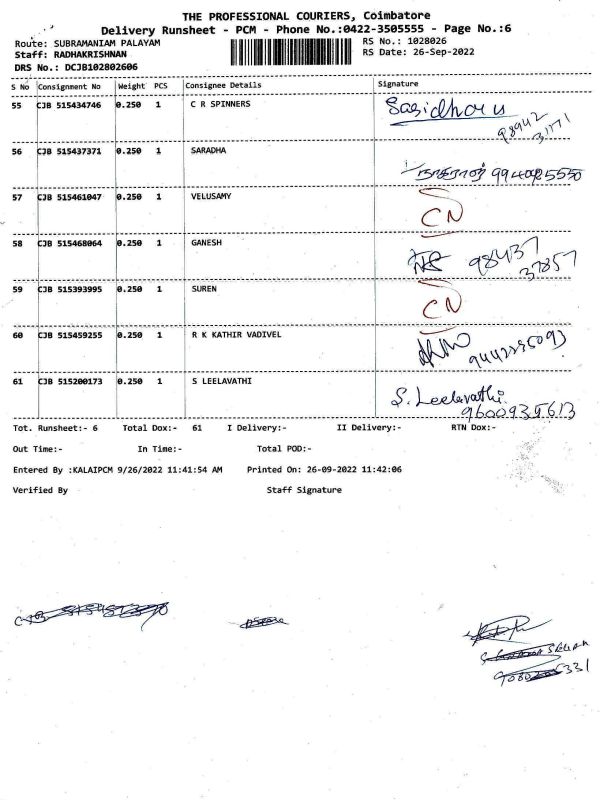 THE PROFESSIONAL COURIERS, Coimbatore
Delivery Runsheet - PCM - Phone No.:0422-3505555 - Page No.:6
Route: SUBRAMANIAM PALAYAM RS No.: 1028026
Staff: RADHAKRISHNAN RS Date: 26-Sep-2022
DRS No.: DCJB102802606
S No Consignment No Weight PCS Consignee Details Signature
55 CJB 515434746 0.250 1 C R SPINNERS
98942
31171
56 CJB 515437371 0.250 1 SARADHA
57 CJB 515461047 0.250 1 VELUSAMY CN
58 CJB 515468064 0.250 1 GANESH 98437
37857
59 CJB 515393995 0.250 1 SUREN CN
60 CJB 515459255 0.250 1 R K KATHIR VADIVEL
61 CJB 515200173 0.250 1 S LEELAVATHI S. Leelavathi
Tot. Runsheet:- 6 Total Dox:- 61 I Delivery:- II Delivery:- RTN Dox:-
Out Time:- In Time:- Total POD:-
Entered By :KALAIPCM 9/26/2022 11:41:54 AM Printed On: 26-09-2022 11:42:06
Verified By Staff Signature